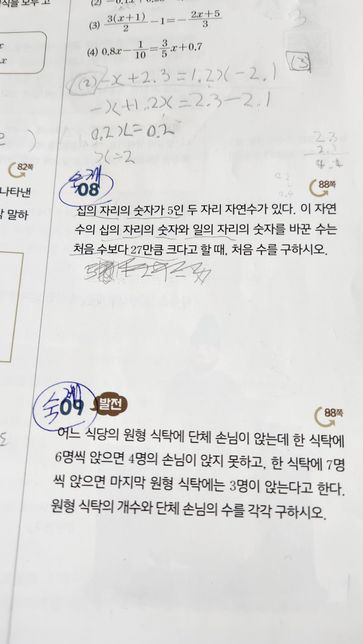 (3) 3(x+1)/2 −1=− 2x+5/3
(4) 0.8x− 1/10 = 3/5 x+0.7
(2) −x+2.3=1.2x−2.1
−x+1.2x=2.3−2.1
0.2x=0.2
82쪽
나타낸
말하
숙제
08
88쪽
십의 자리의 숫자가 5인 두 자리 자연수가 있다. 이 자연
수의 십의 자리의 숫자와 일의 자리의 숫자를 바꾼 수는
처음 수보다 27만큼 크다고 할 때, 처음 수를 구하시오.
숙제
09 발전
88쪽
어느 식당의 원형 식탁에 단체 손님이 앉는데 한 식탁에
6명씩 앉으면 4명의 손님이 앉지 못하고, 한 식탁에 7명
씩 앉으면 마지막 원형 식탁에는 3명이 앉는다고 한다.
원형 식탁의 개수와 단체 손님의 수를 각각 구하시오.